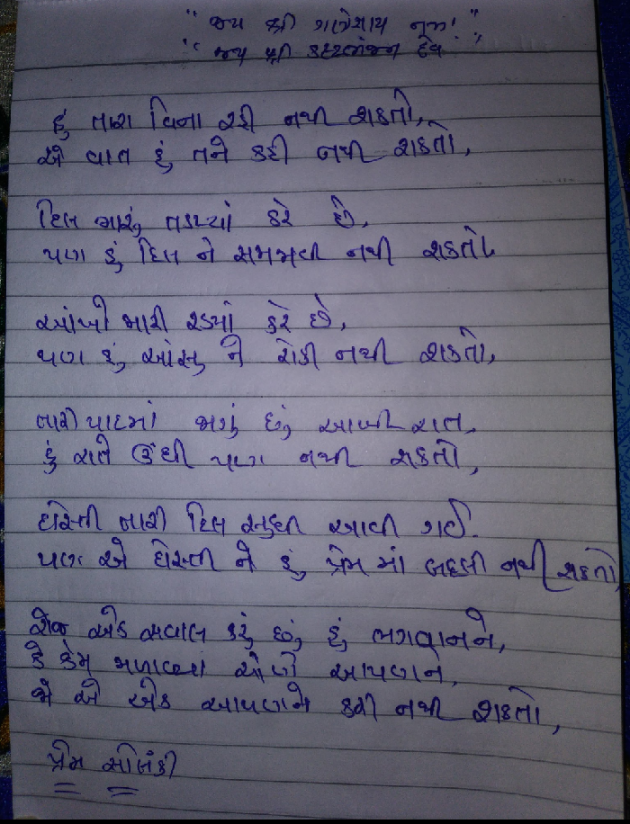 "જય શ્રી ગણેશાય નમઃ"
"જય શ્રી કષ્ટભંજન દેવ"
હું તારા વિના રહી નથી શકતો,
એ વાત હું તને કહી નથી શકતો,
દિલ મારું તડપ્યાં કરે છે,
પણ હું દિલ ને સમજાવી નથી શકતો.
આંખો મારી રડ્યાં કરે છે,
પણ હું આંસુ ને રોકી નથી શકતો,
તારી યાદમાં જાગું છું આખી રાત,
હું રાતે ઊંઘી પણ નથી શકતો,
દોસ્તી તારી દિલ સુધી આવી ગઈ.
પણ એ દોસ્તી ને હું પ્રેમ માં બદલી નથી શકતો,
રોજ એક સવાલ કરું છું હું ભગવાનને,
કે કેમ મળાવ્યા એણે આપણને,
જો એ એક આપણને કરી નથી શકતો,
પ્રેમ સોલંકી